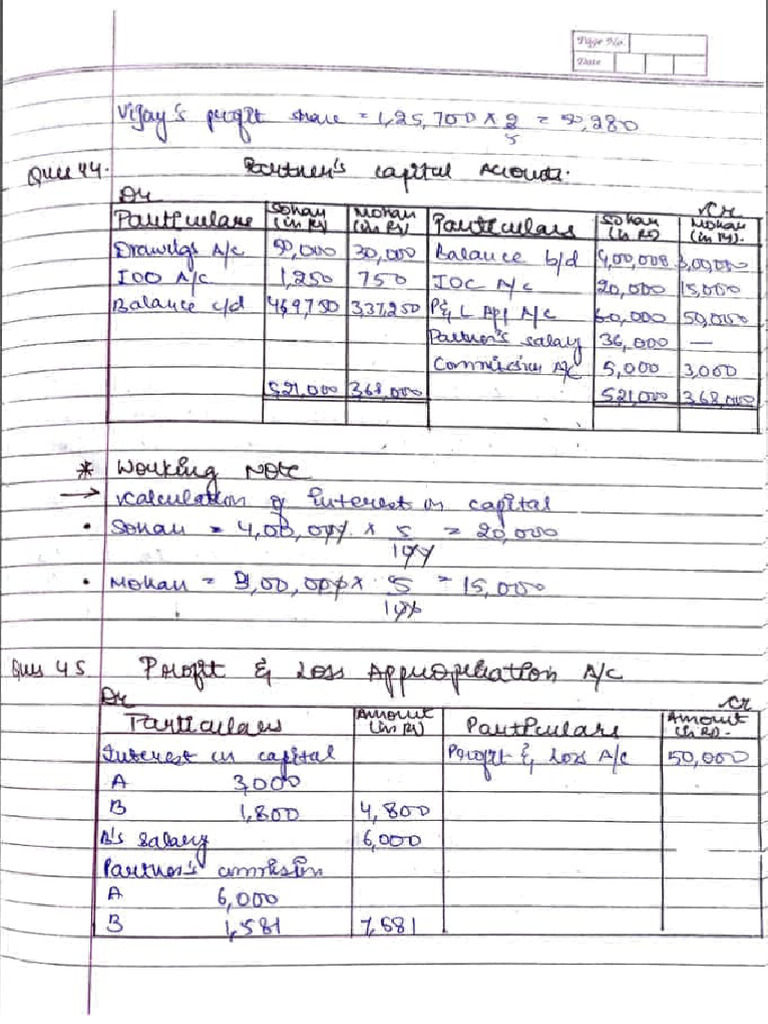 Page No.
Date
Vijay's profit share = 1,25,700 × 2/5 = 50,280
Ques 44. Partner's capital Accounts.
Dr Cr
Particulars Sohan (in Rs) Mohan (in Rs) Particulars Sohan (in Rs) Mohan (in Rs).
Drawings A/c 50,000 30,000 Balance b/d 4,00,000 3,00,000
IOD A/c 1,250 750 IOC A/c 20,000 15,000
Balance c/d 469,750 337,250 P & L Ap| A/c 60,000 50,000
Partner's salary 36,000 —
Commission A/c 5,000 3,000
521,000 368,000 521,000 368,000
* Working Note
→ Calculation of interest on capital
• Sohan = 4,00,000 × 5/100 = 20,000
• Mohan = 3,00,000 × 5/100 = 15,000
Ques 45 Profit & Loss Appropriation A/c
Dr Cr
Particulars Amount (in Rs) Particulars Amount (in Rs).
Interest on capital Profit & Loss A/c 50,000
A 3,000
B 1,800 4,800
B's salary 6,000
Partner's commission
A 6,000
B 1,581 7,581